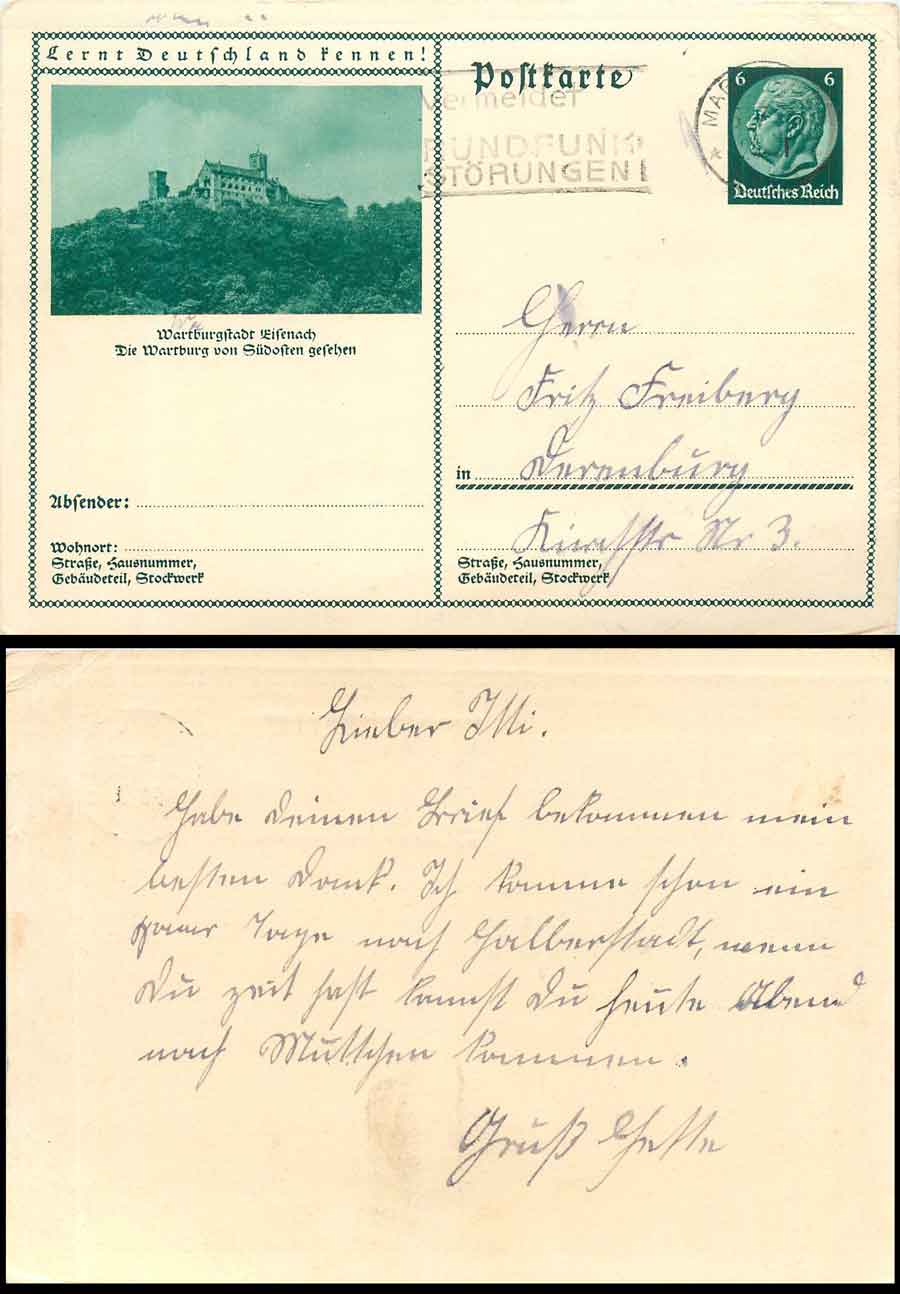 Lernt Deutschland kennen!
Postkarte
vermeidet
RUNDFUNK
STÖRUNGEN!
6 6
Deutsches Reich
Wartburgstadt Eisenach
Die Wartburg von Südosten gesehen
Herrn
Fritz Freiberg
in Derenburg
Kirchstr Nr 3.
Absender:
Wohnort:
Straße, Hausnummer,
Gebäudeteil, Stockwerk
Straße, Hausnummer,
Gebäudeteil, Stockwerk
Lieber Illi.
Habe deinen Brief bekommen mein
besten Dank. Ich komme schon ein
paar Tage nach Halberstadt, wenn
Du zeit hast kannst Du heute Abend
nach Muttchen kommen.
Gruß